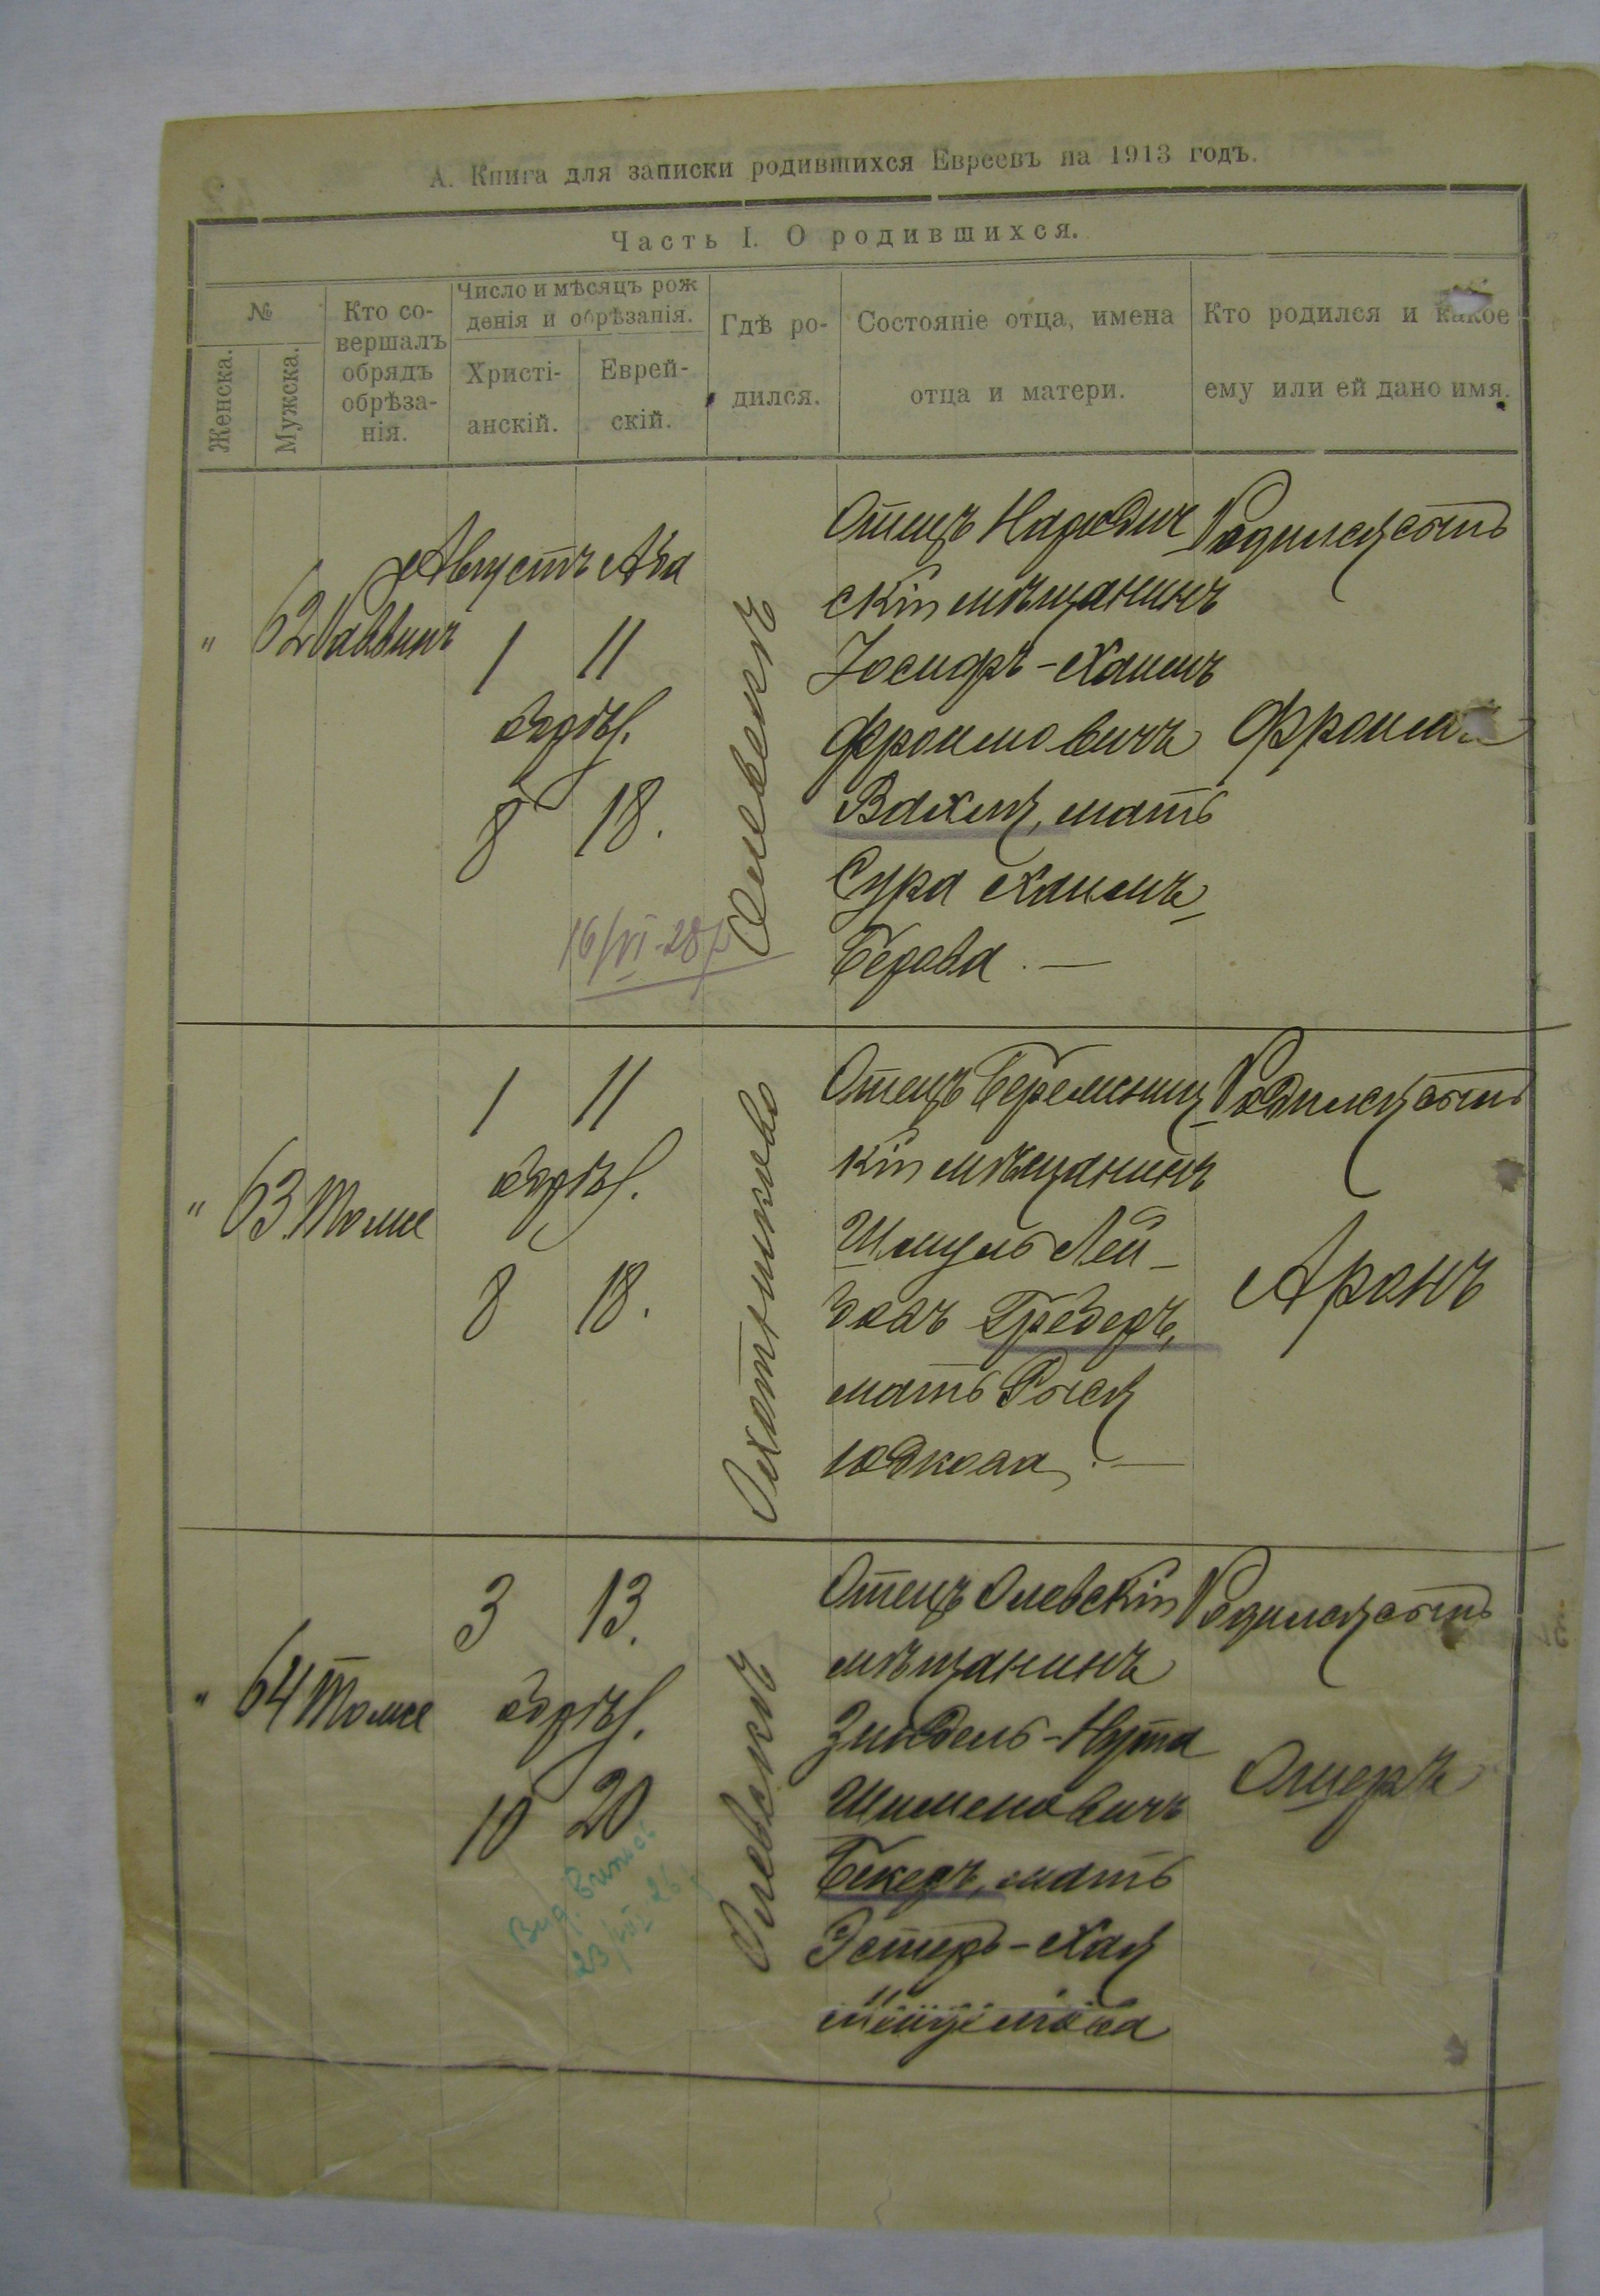 А. Книга для записки родившихся Евреевъ на 1913 годъ.
Часть I. О родившихся.
№
Женска.
Мужска.
Кто со-
вершалъ
обрядъ
обрѣза-
нія.
Число и мѣсяцъ рож
денія и обрѣзанія.
Христі-
анскій.
Еврей-
скій.
Гдѣ ро-
дился.
Состояніе отца, имена
отца и матери.
Кто родился и какое
ему или ей дано имя.
Августъ Ава
" 62 Раввинъ
1 11
обрѣз.
8 18.
16/VI-28
Олевскъ
Отецъ Народич
скій мѣщанинъ
Іосифъ-Хаимъ
Фроимовичъ
Вахъ, мать
Сура Хаимъ-
Берова . —
Родился сынъ
Фроимъ
" 63. Тоже
1 11
обрѣз.
8 18.
Охотниково
Отецъ
кій мѣщанинъ
Шмуль Лей-
Гребель,
мать Рыся
Юдкова . —
Родился сынъ
Аронъ
" 64 Тоже
3 13.
обрѣз.
10 20
23/VII 26
Олевскъ
Отецъ Олевскій
мѣщанинъ
Зиндель-Нута
Шимоновичъ
Бекеръ, мать
Эстеръ-Хая
Родился сынъ
Ошеръ